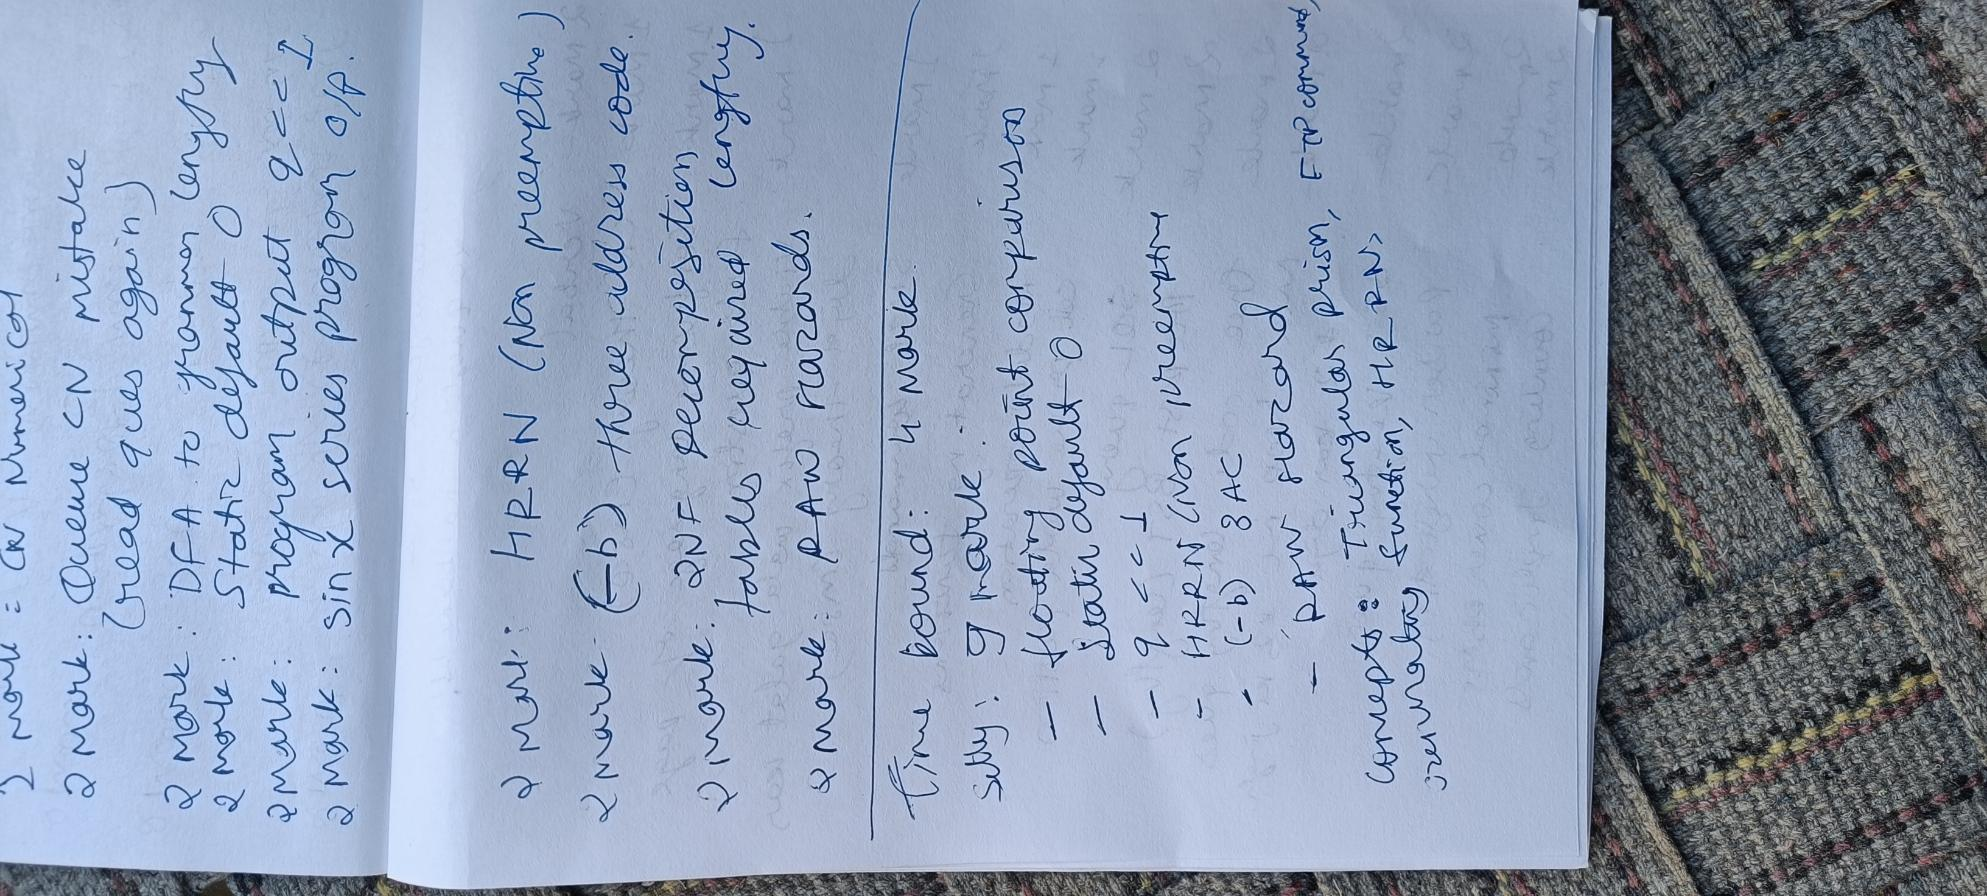 2 mark = CN Numerical
2 mark: Queue CN mistake
(read ques again)
2 mark: DFA to grammar lengthy
2 mark: Static default 0
2 mark: program output q << 1
2 mark: sin x series program o/p.
2 mark: HRRN (Non preemptive)
2 mark: (-b) three address code.
2 mark: 2NF decomposition
tables required lengthy.
2 mark: RAW hazards.
Time bound: 4 mark.
Silly: 9 mark:
- floating point comparison
- Static default 0
- q << 1
- HRRN (Non preemptive
- (-b) 3AC
- RAW hazard
Concepts: Triangular prism, FTP command,
function, HRRN,